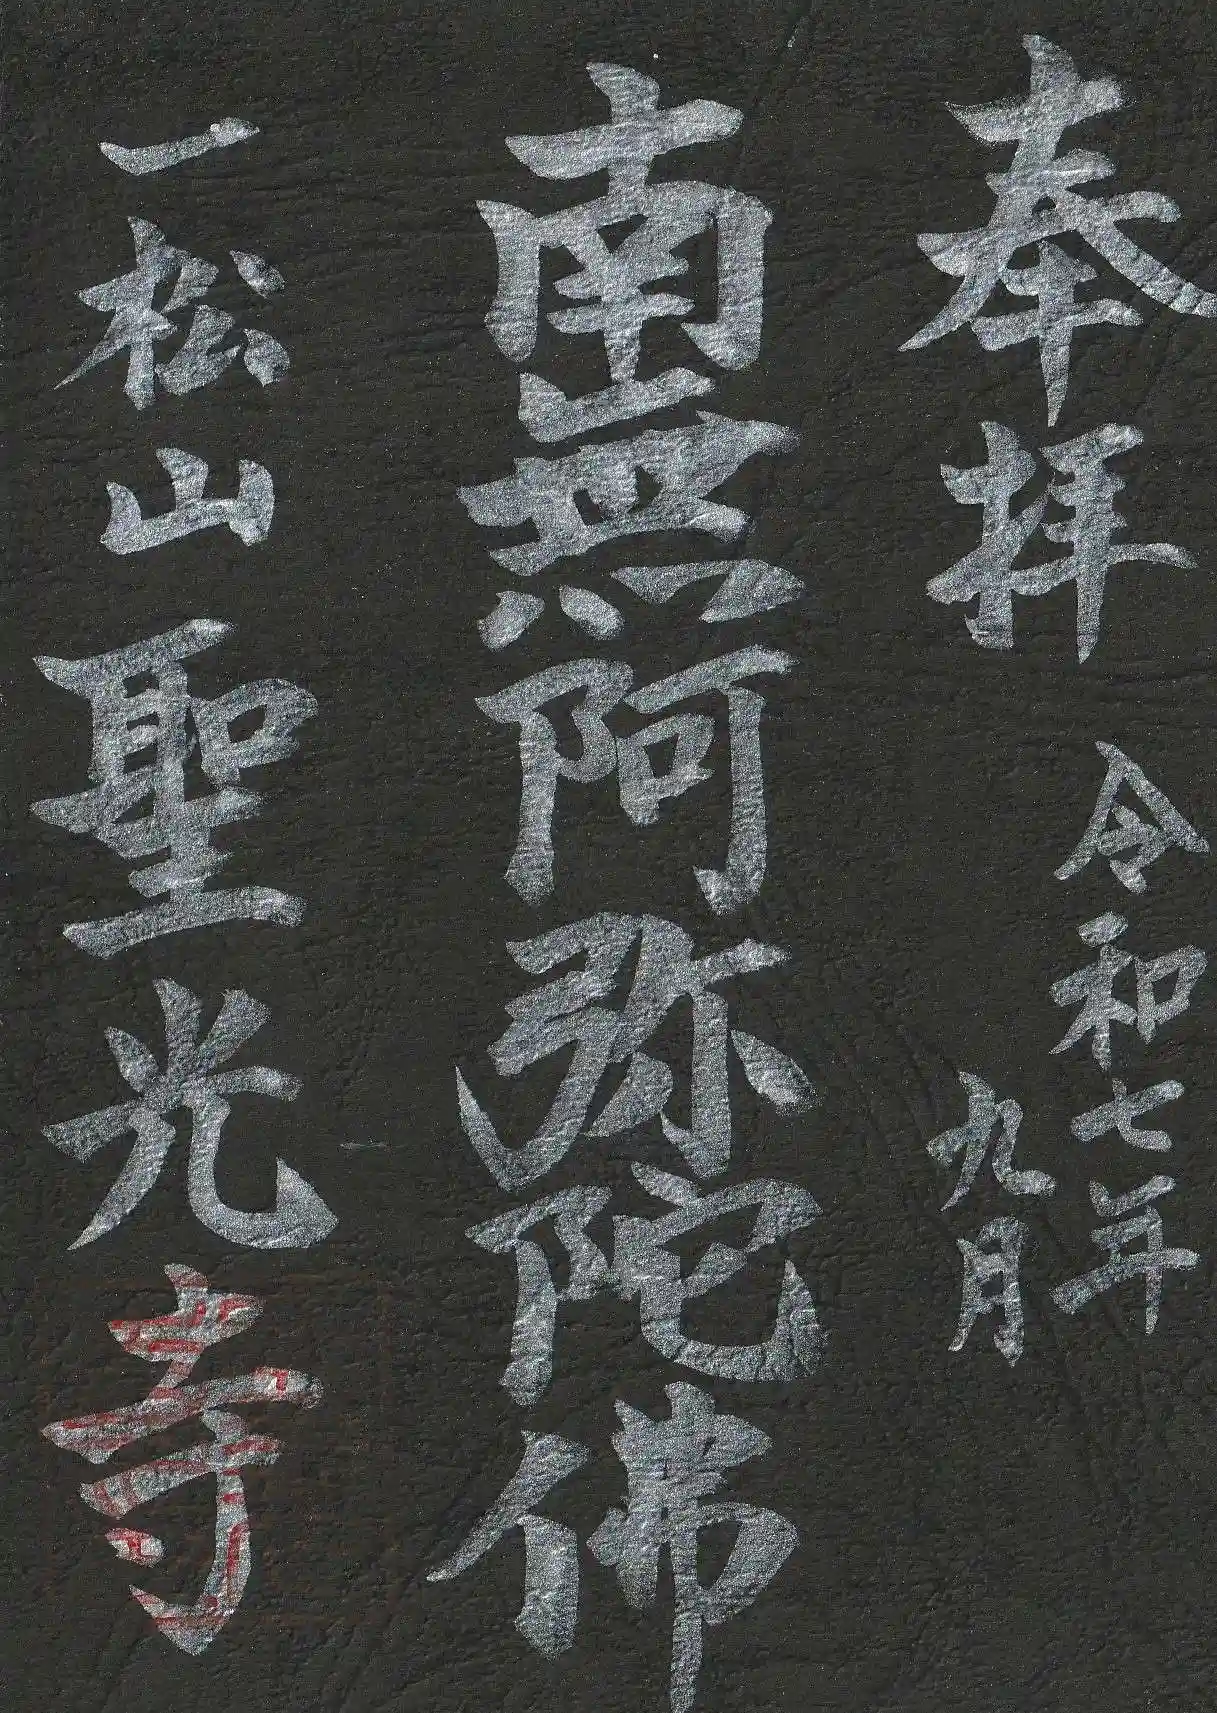 奉拝
令和七年
九月
南無阿弥陀佛
一松山聖光寺